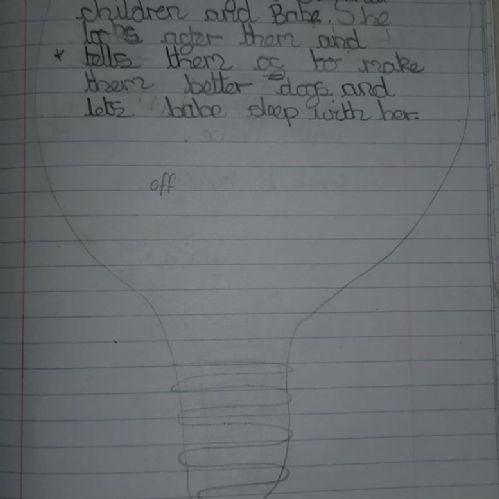 children and Babe. She
looks after them and
* tells them os to make
them better dogs and
lets babe sleep with her.
off